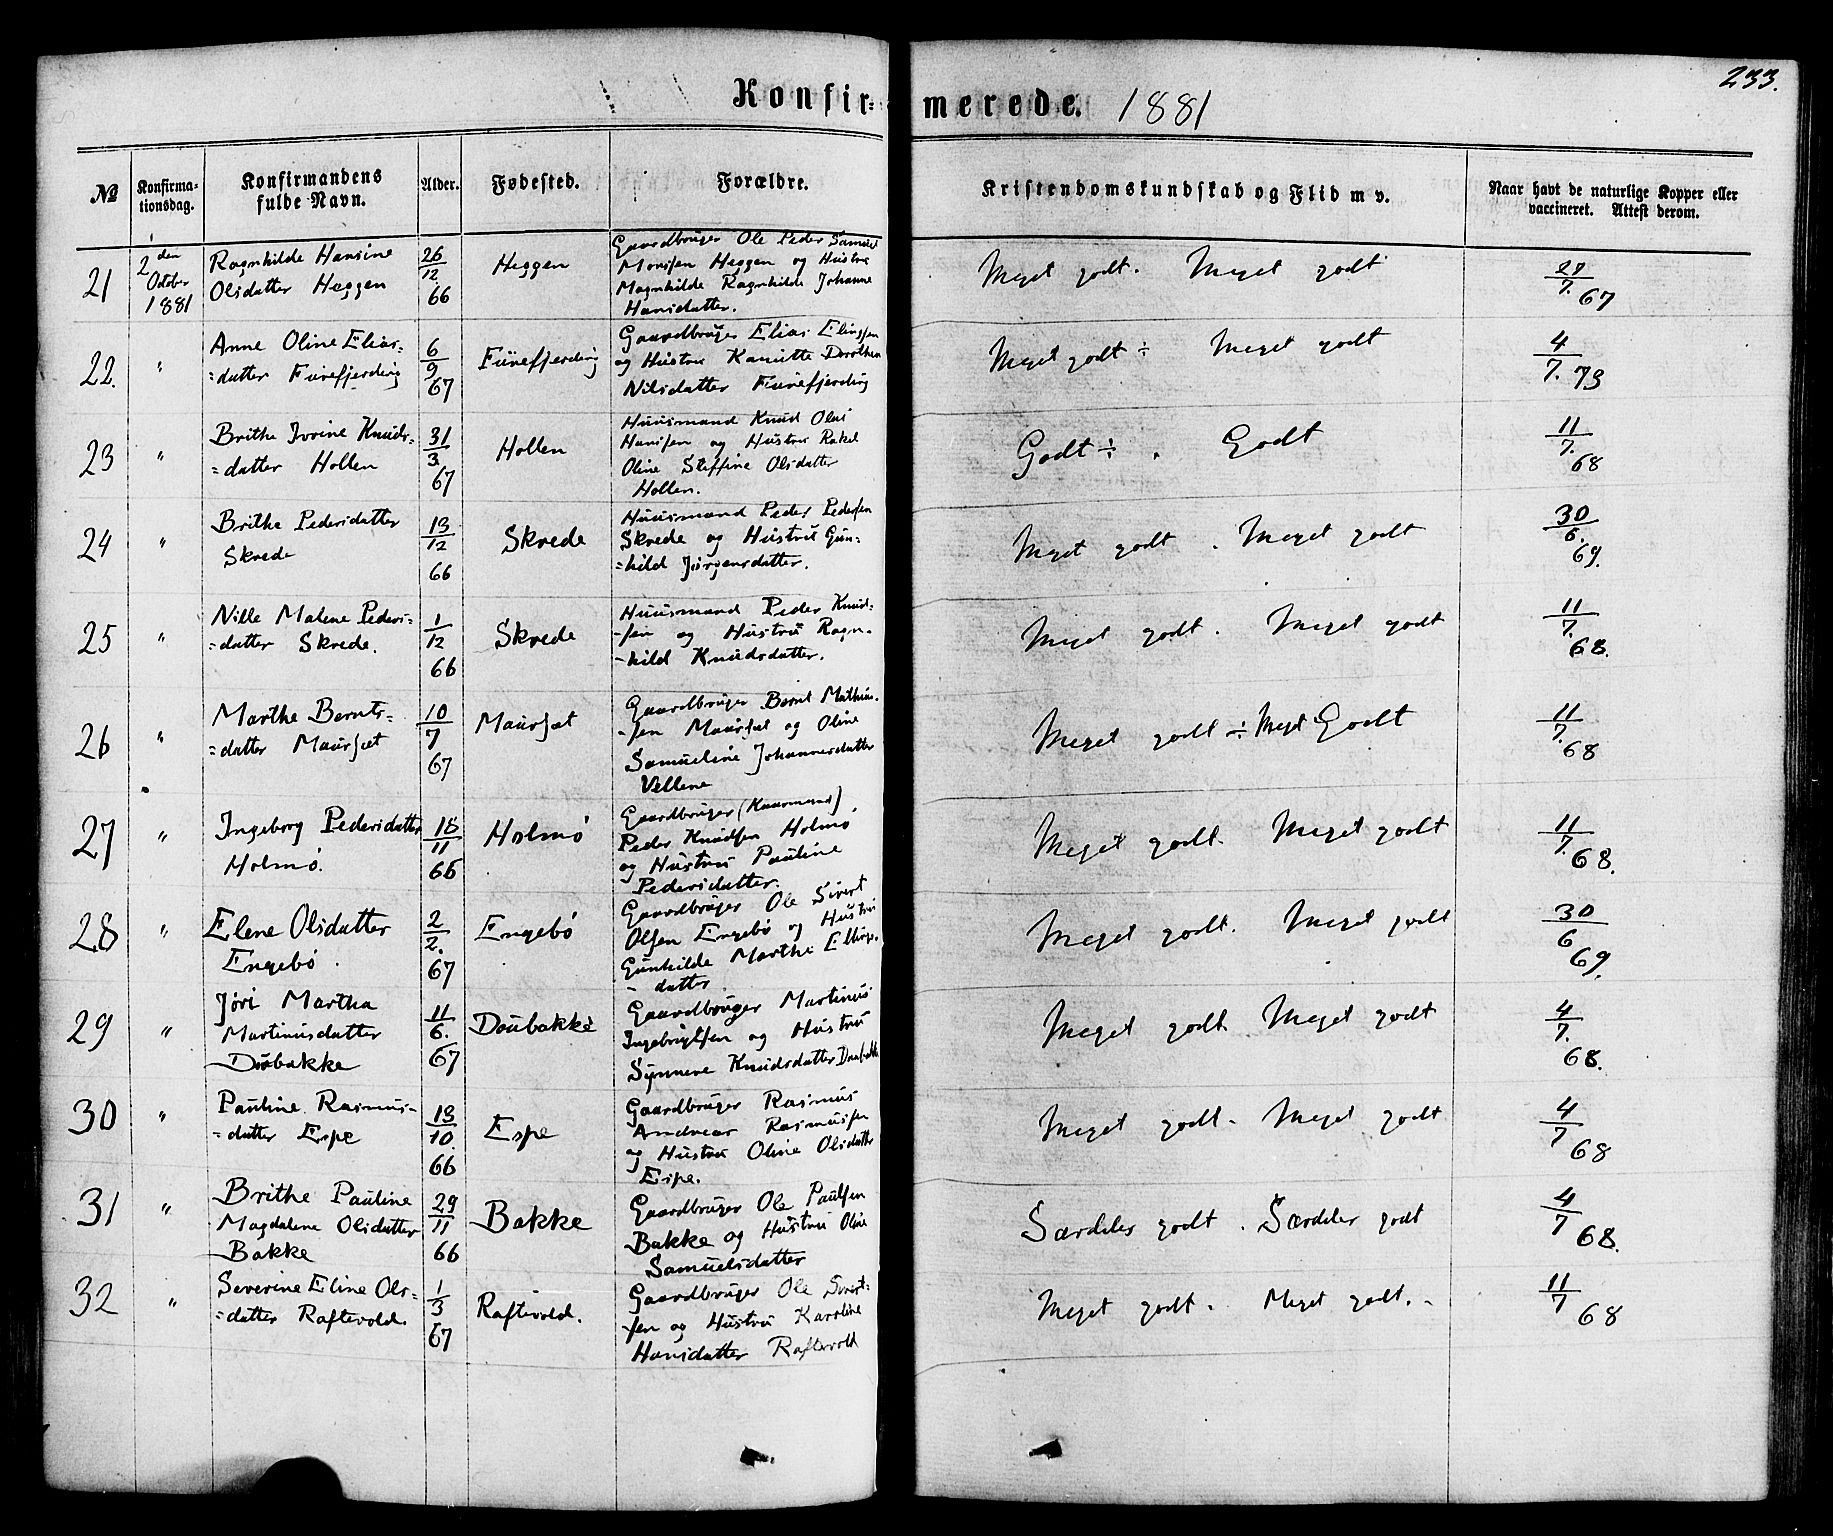 233.
Konfir= merede. 1881
№
Konfirma-
tionsdag.
Konfirmandens
fulde Navn.
Alder.
Fødested.
Forældre.
Kristendomskundskab og Flid m v.
Naar havt de naturlige Kopper eller
vaccineret. Attest derom.
21
2 den
October
1881
Ragnhilde Hansine
Olsdatter Heggen
26/12 66
Heggen
Gaardbruger Ole Peder Samuel
Monsen Heggen og Hustru
Magnhilde Ragnhilde Johanne
Hansdatter.
Meget godt. Meget godt
28/7. 67
22.
"
Anne Oline Elias=
=datter Furefjerding
6/9 67
Furefjerding
Gaardbruger Elias Elingsen
og Hustru Kanutte Dorthea
Nilsdatter Furefjerding
Meget godt ÷ Meget godt
4/7. 73
23
"
Brithe Ivrine Knuds=
=datter Hollen
31/3 67
Hollen
Huusmand Knud Olai
Hansen og Hustru Rakel
Oline Steffine Olsdatter
Hollen.
Godt ÷ . Godt
11/7. 68
24
"
Brithe Pedersdatter
Skrede
13/12 66
Skrede
Huusmand Peder Pedersen
Skrede og Hustru Gun=
=hild Jørgensdatter.
Meget godt . Meget godt
30/6. 69.
25
"
Nille Malene Peders=
=datter Skrede.
1/12 66
Skrede
Huusmand Peder Knud=
=sen og Hustru Ragn=
=hild Knudsdatter.
Meget godt. Meget godt
11/7. 68.
26
"
Marthe Bernts=
=datter Maursæt
10/7 67
Maursæt
Gaardbruger Bernt Mathias=
=sen Maursæt og Oline
Samueline Johannesdatter
Vellene
Meget godt ÷ Meget Godt
11/7. 68
27
"
Ingeborg Pedersdatter
Holmø.
18/11 66
Holmø
Gaardbruger (Kaarmand).
Peder Knudsen Holmø
og Hustru Pauline
Pedersdatter.
Meget godt. Meget godt
11/7. 68.
28
"
Elene Olsdatter
Engebø.
2/2. 67
Engebø
Gaardbruger Ole Sivert
Olsen Engebø og Hustru
Gunhilde Marthe Ellings=
=datter.
Meget godt. Meget godt
30/6 69.
29
"
Jøri Martha
Martinusdatter
Daubakke
11/6. 67
Daubakke
Gaardbruger Martinus
Ingebrigtsen og Hustru
Synneve Knudsdatter Daubakke
Meget godt. Meget godt
4/7. 68.
30
"
Pauline Rasmus=
=datter Espe
13/10 66
Espe
Gaardbruger Rasmus
Andreas Rasmussen
og Hustru Oline Olsdatter
Espe.
Meget godt. Meget godt
4/7 68
31
"
Brithe Pauline
Magdalene Olsdatter
Bakke
29/11 66
Bakke
Gaardbruger Ole Paulsen
Bakke og Hustru Oline
Samuelsdatter
Særdeles godt. Særdeles godt
4/7 68.
32
"
Severine Eline Ols=
=datter Raftevold.
1/3 67
Raftevold.
Gaardbruger Ole Sivert=
=sen og Hustru Karoline
Hansdatter Raftevold
Meget godt. Meget godt.
11/7 68